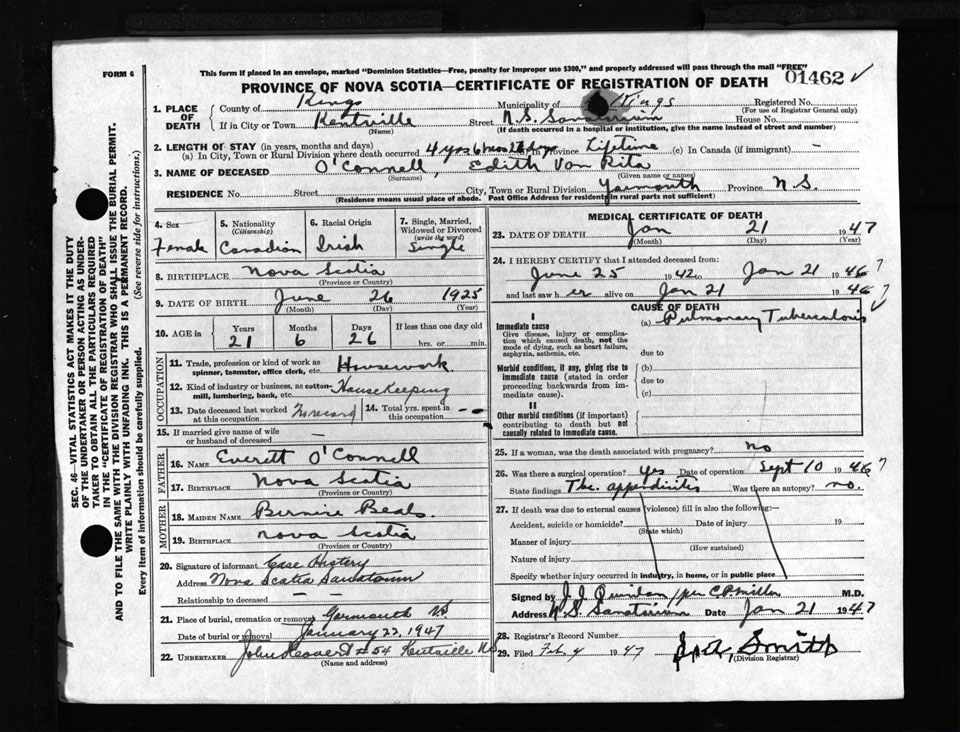 FORM 6
This form if placed in an envelope, marked "Dominion Statistics—Free, penalty for improper use $300," and properly addressed will pass through the mail "FREE"
01462 ✓
PROVINCE OF NOVA SCOTIA—CERTIFICATE OF REGISTRATION OF DEATH
1. PLACE OF DEATH
County of Kings Municipality of Kings Registered No.
(For use of Registrar General only)
If in City or Town Kentville Street N.S. Sanatorium House No.
(Name) (If death occurred in a hospital or institution, give the name instead of street and number)
2. LENGTH OF STAY (in years, months and days)
(a) In City, Town or Rural Division where death occurred 4 yrs 6 mos 28 dys (b) In Province Lifetime (c) In Canada (if immigrant) —
3. NAME OF DECEASED O'Connell, Edith Von Rita
(Surname) (Given name or names)
RESIDENCE No. Street City, Town or Rural Division Yarmouth Province N.S.
(Residence means usual place of abode. Post Office Address for residents in rural parts not sufficient)
4. Sex
Female
5. Nationality
(Citizenship)
Canadian
6. Racial Origin
Irish
7. Single, Married, Widowed or Divorced
(write the word)
Single
8. BIRTHPLACE Nova Scotia
(Province or Country)
9. DATE OF BIRTH June 26 1925
(Month) (Day) (Year)
10. AGE in
Years Months Days If less than one day old
21 6 26 hrs. or min.
OCCUPATION
11. Trade, profession or kind of work as spinner, teamster, office clerk, etc. Housework.
12. Kind of industry or business, as cotton-mill, lumbering, bank, etc. Housekeeping
13. Date deceased last worked at this occupation No record
14. Total yrs. spent in this occupation --
15. If married give name of wife or husband of deceased —
FATHER
16. NAME Everett O'Connell
17. BIRTHPLACE Nova Scotia
(Province or Country)
MOTHER
18. MAIDEN NAME Bernice Beals.
19. BIRTHPLACE Nova Scotia
(Province or Country)
20. Signature of informant Case History
Address Nova Scotia Sanatorium
Relationship to deceased — —
21. Place of burial, cremation or removal Yarmouth NS
Date of burial or removal January 22, 1947
22. UNDERTAKER John # 54 Kentville NS
(Name and address)
MEDICAL CERTIFICATE OF DEATH
23. DATE OF DEATH Jan 21 1947
(Month) (Day) (Year)
24. I HEREBY CERTIFY that I attended deceased from:
June 25 1942 to Jan 21 1946 ?
and last saw her alive on Jan 21 1946 ?
CAUSE OF DEATH ✓
I
Immediate cause
Give disease, injury or complication which caused death, not the mode of dying, such as heart failure, asphyxia, asthenia, etc.
(a) Pulmonary Tuberculosis
due to
Morbid conditions, if any, giving rise to immediate cause (stated in order proceeding backwards from immediate cause).
(b)
due to
(c)
II
Other morbid conditions (if important) contributing to death but not causally related to immediate cause.
25. If a woman, was the death associated with pregnancy? no
26. Was there a surgical operation? yes Date of operation Sept 10 1946 ?
State findings Tbc. appendicitis Was there an autopsy? no.
27. If death was due to external causes (violence) fill in also the following:
Accident, suicide or homicide? Date of injury 19
(State which)
Manner of injury
(How sustained)
Nature of injury
Specify whether injury occurred in industry, in home, or in public place
Signed by J.J. Quinlan / per C.P. Miller M.D.
Address N.S. Sanatorium Date Jan 21 1947
28. Registrar's Record Number
29. Filed Feb. 4 1947 Smith
(Division Registrar)
SEC. 46—VITAL STATISTICS ACT MAKES IT THE DUTY OF THE UNDERTAKER OR PERSON ACTING AS UNDERTAKER TO OBTAIN ALL THE PARTICULARS REQUIRED IN THE "CERTIFICATE OF REGISTRATION OF DEATH" AND TO FILE THE SAME WITH THE DIVISION REGISTRAR WHO SHALL ISSUE THE BURIAL PERMIT.
WRITE PLAINLY WITH UNFADING INK. THIS IS A PERMANENT RECORD.
Every item of information should be carefully supplied. (See reverse side for instructions.)